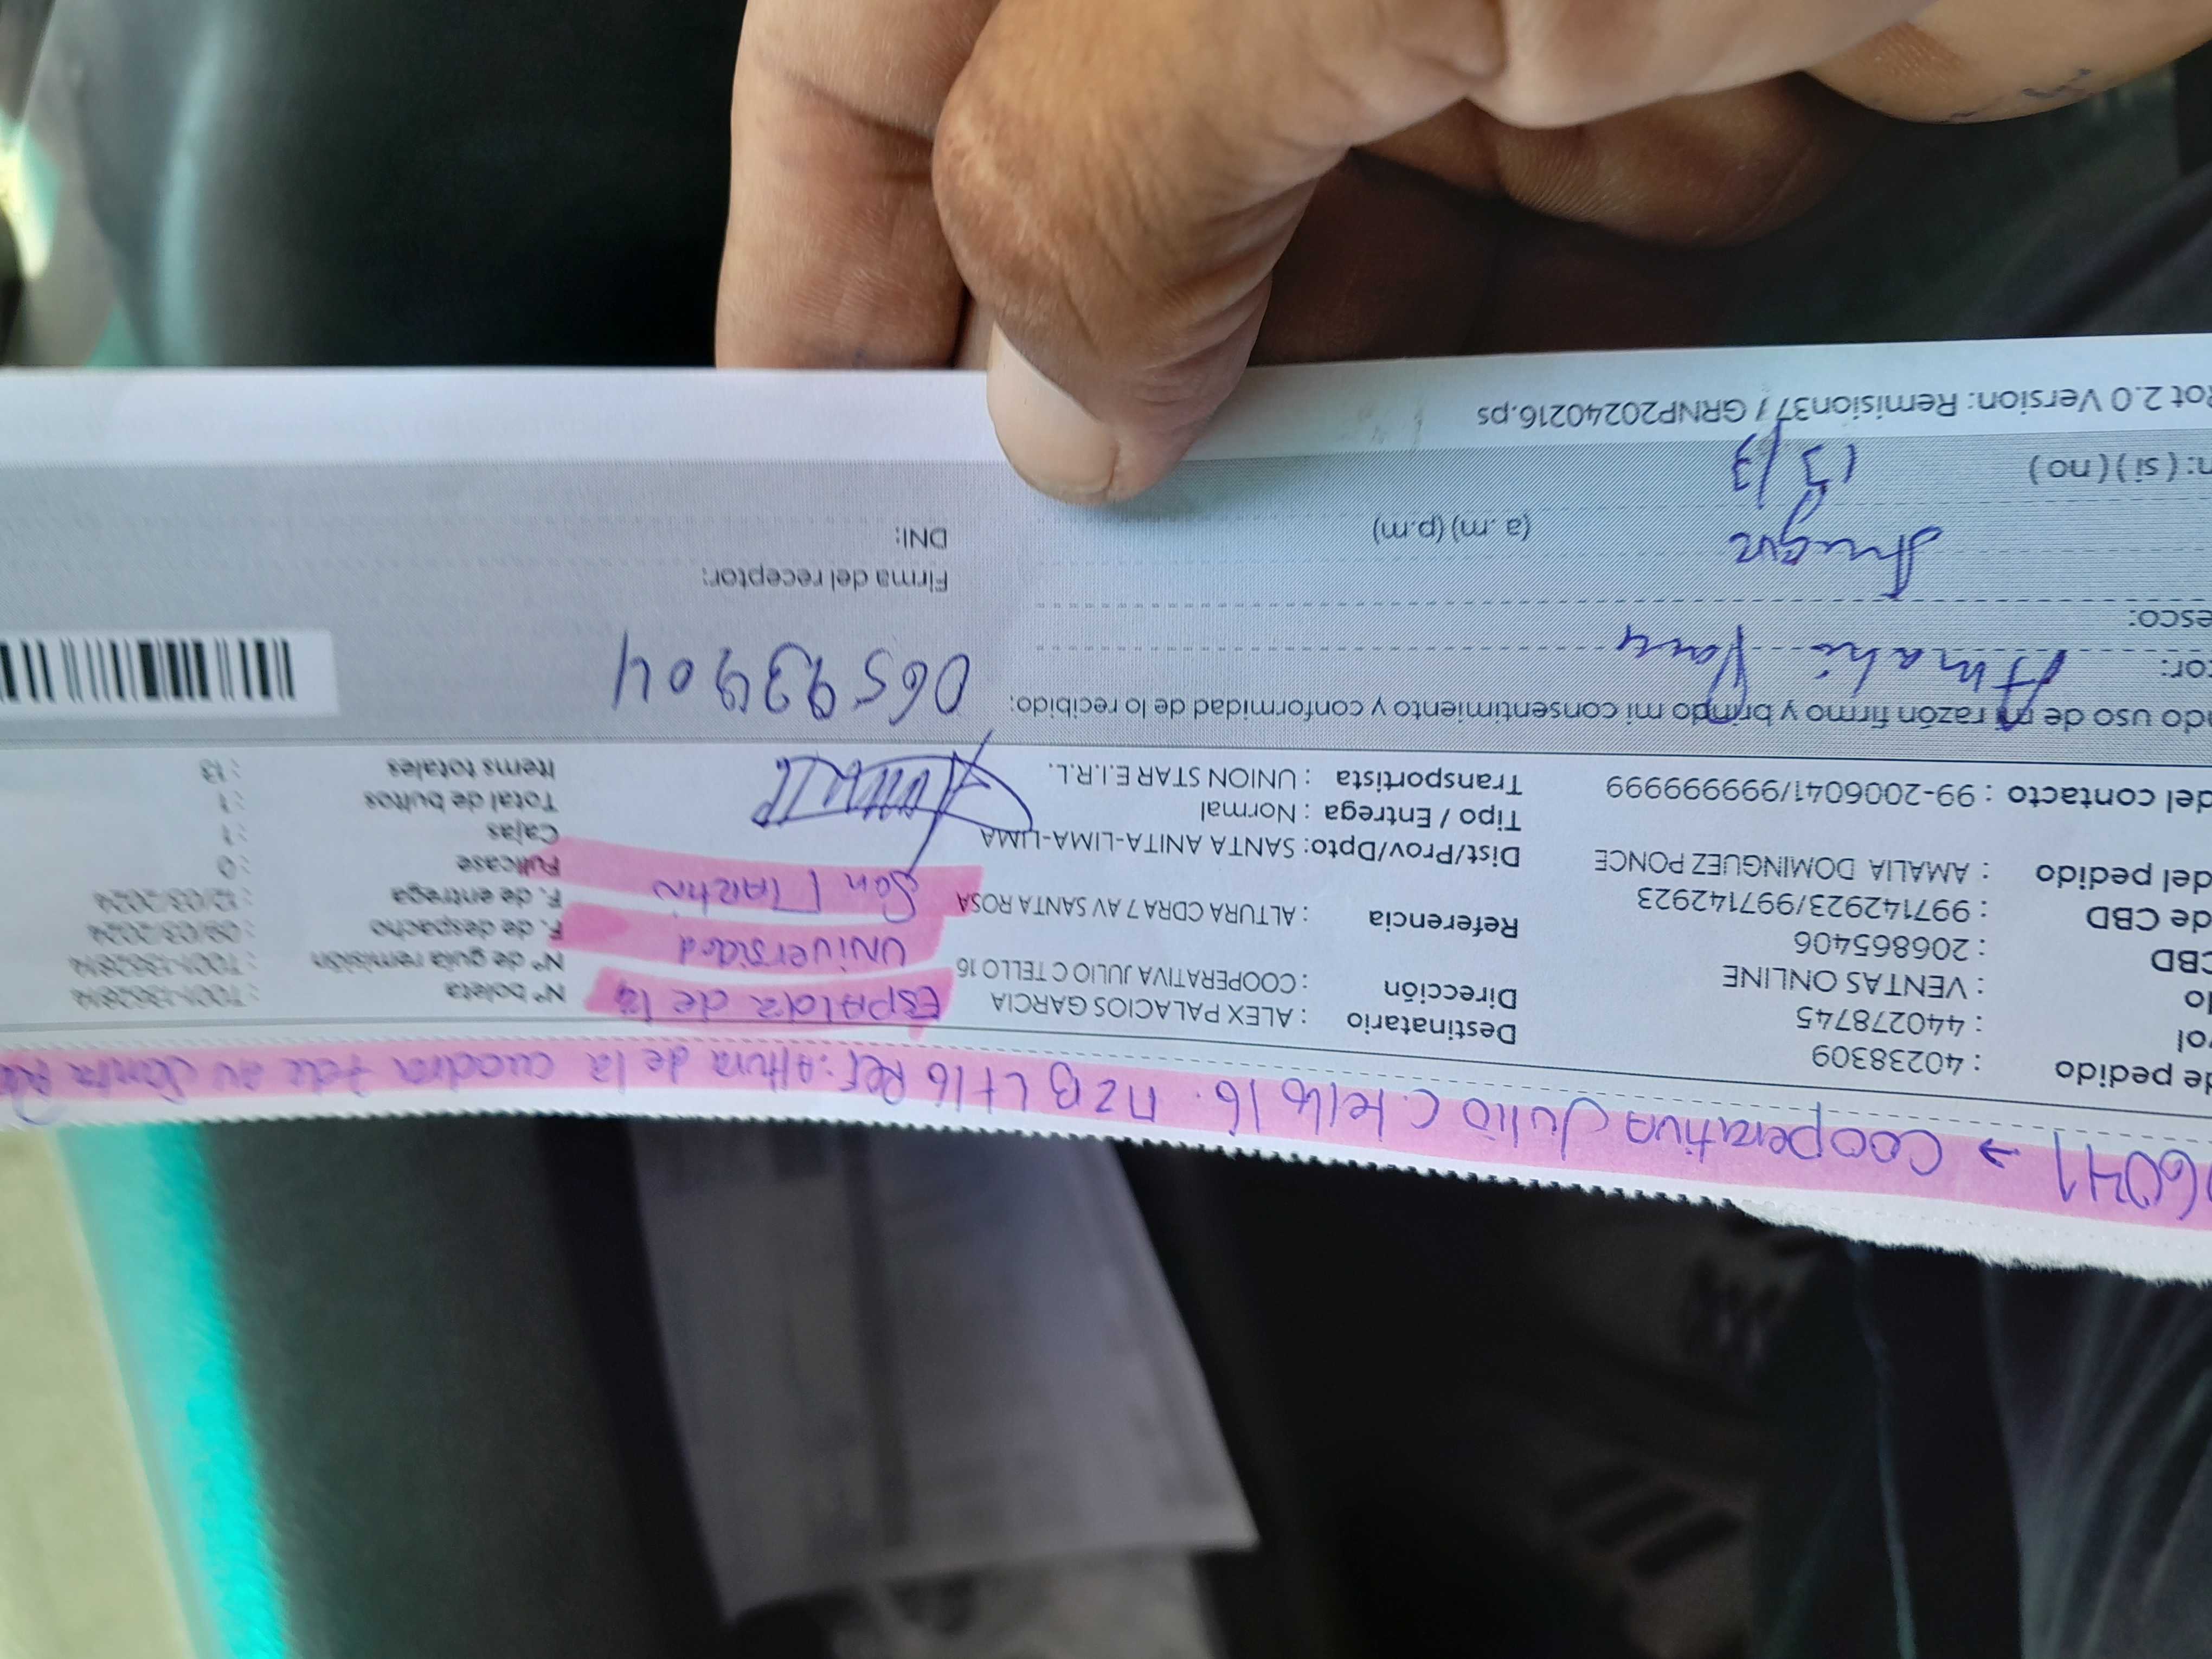 6041 → Cooperativa Julio C. tello 16. MZ B Lt 16 Ref: Altura de la cuadra 7 de av Santa
de pedido : 40238309
ol : 440278745
lo : VENTAS ONLINE
CBD : 206865406
de CBD : 997142923/997142923
del pedido : AMALIA DOMINGUEZ PONCE
del contacto : 99-2006041/999999999
Destinatario : ALEX PALACIOS GARCIA
Dirección : COOPERATIVA JULIO C TELLO 16
Referencia : ALTURA CDRA 7 AV SANTA ROSA
Dist/Prov/Dpto: SANTA ANITA-LIMA-LIMA
Tipo / Entrega : Normal
Transportista : UNION STAR E.I.R.L.
ESPALDA de la
UNIVERSIDAD
San MARTIN
Nº boleta : T001-1362814
Nº de guía remisión : T001-1362814
F. de despacho : 09/03/2024
F. de entrega : 12/03/2024
Fullcase : 0
Cajas : 1
Total de bultos : 1
Items totales : 13
do uso de mi razón firmo y brindo mi consentimiento y conformidad de lo recibido:
or: Amalia
06593904
esco:
Firma del receptor:
(a .m) (p.m)
DNI:
n: ( si ) ( no )
13/3
Rot 2.0 Version: Remision37 / GRNP20240216.ps